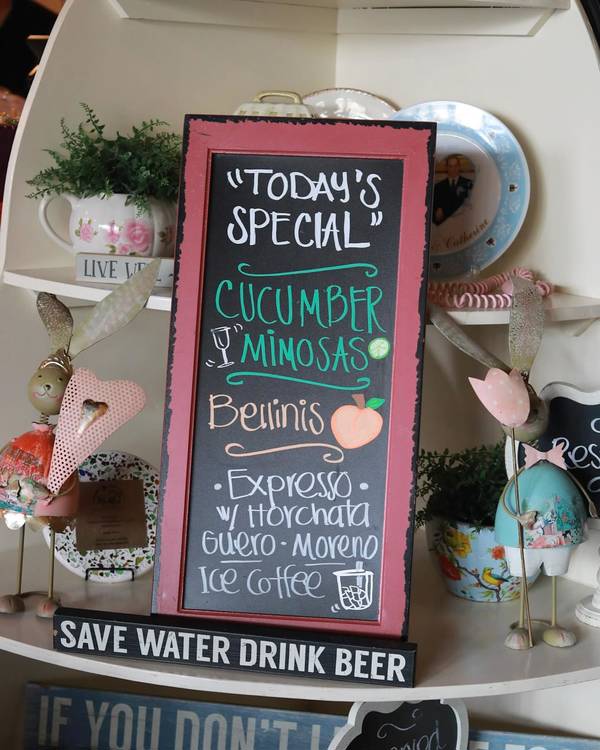 "TODAY'S
SPECIAL"
CUCUMBER
MIMOSAS
Bellinis
• Expresso •
w/ Horchata
Guero - Moreno
Ice Coffee
SAVE WATER DRINK BEER
LIVE
& Catherine
IF YOU DON'T